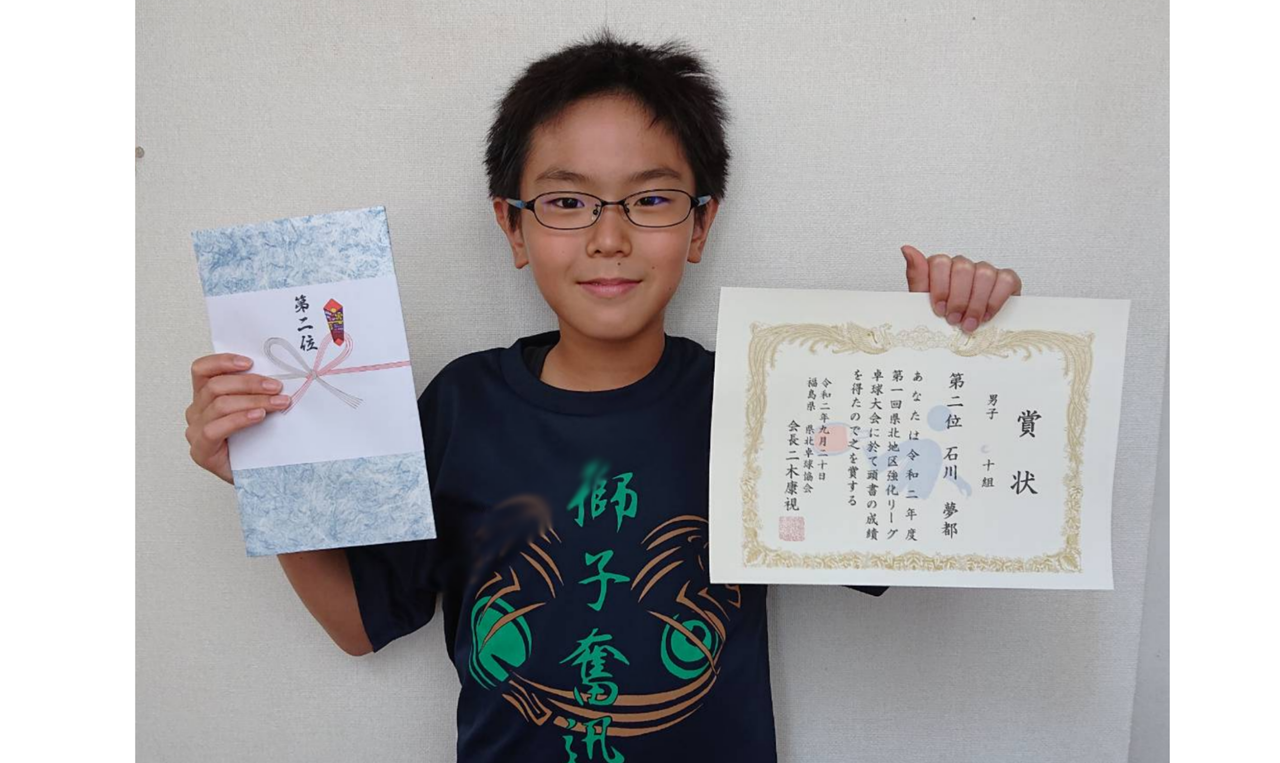 第二位
獅子奮迅
賞状
男子 十組
第二位 石川 夢都
あなたは令和二年度
第一回県北地区強化リーグ
卓球大会に於て頭書の成績
を得たので之を賞する
令和二年九月二十日
福島県 県北卓球協会
会長 二木康視